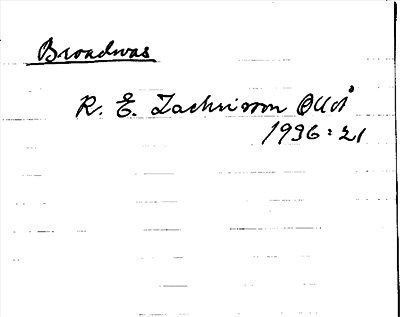 Broadwas
R. E. Zachrisson OUÅ
1936:21